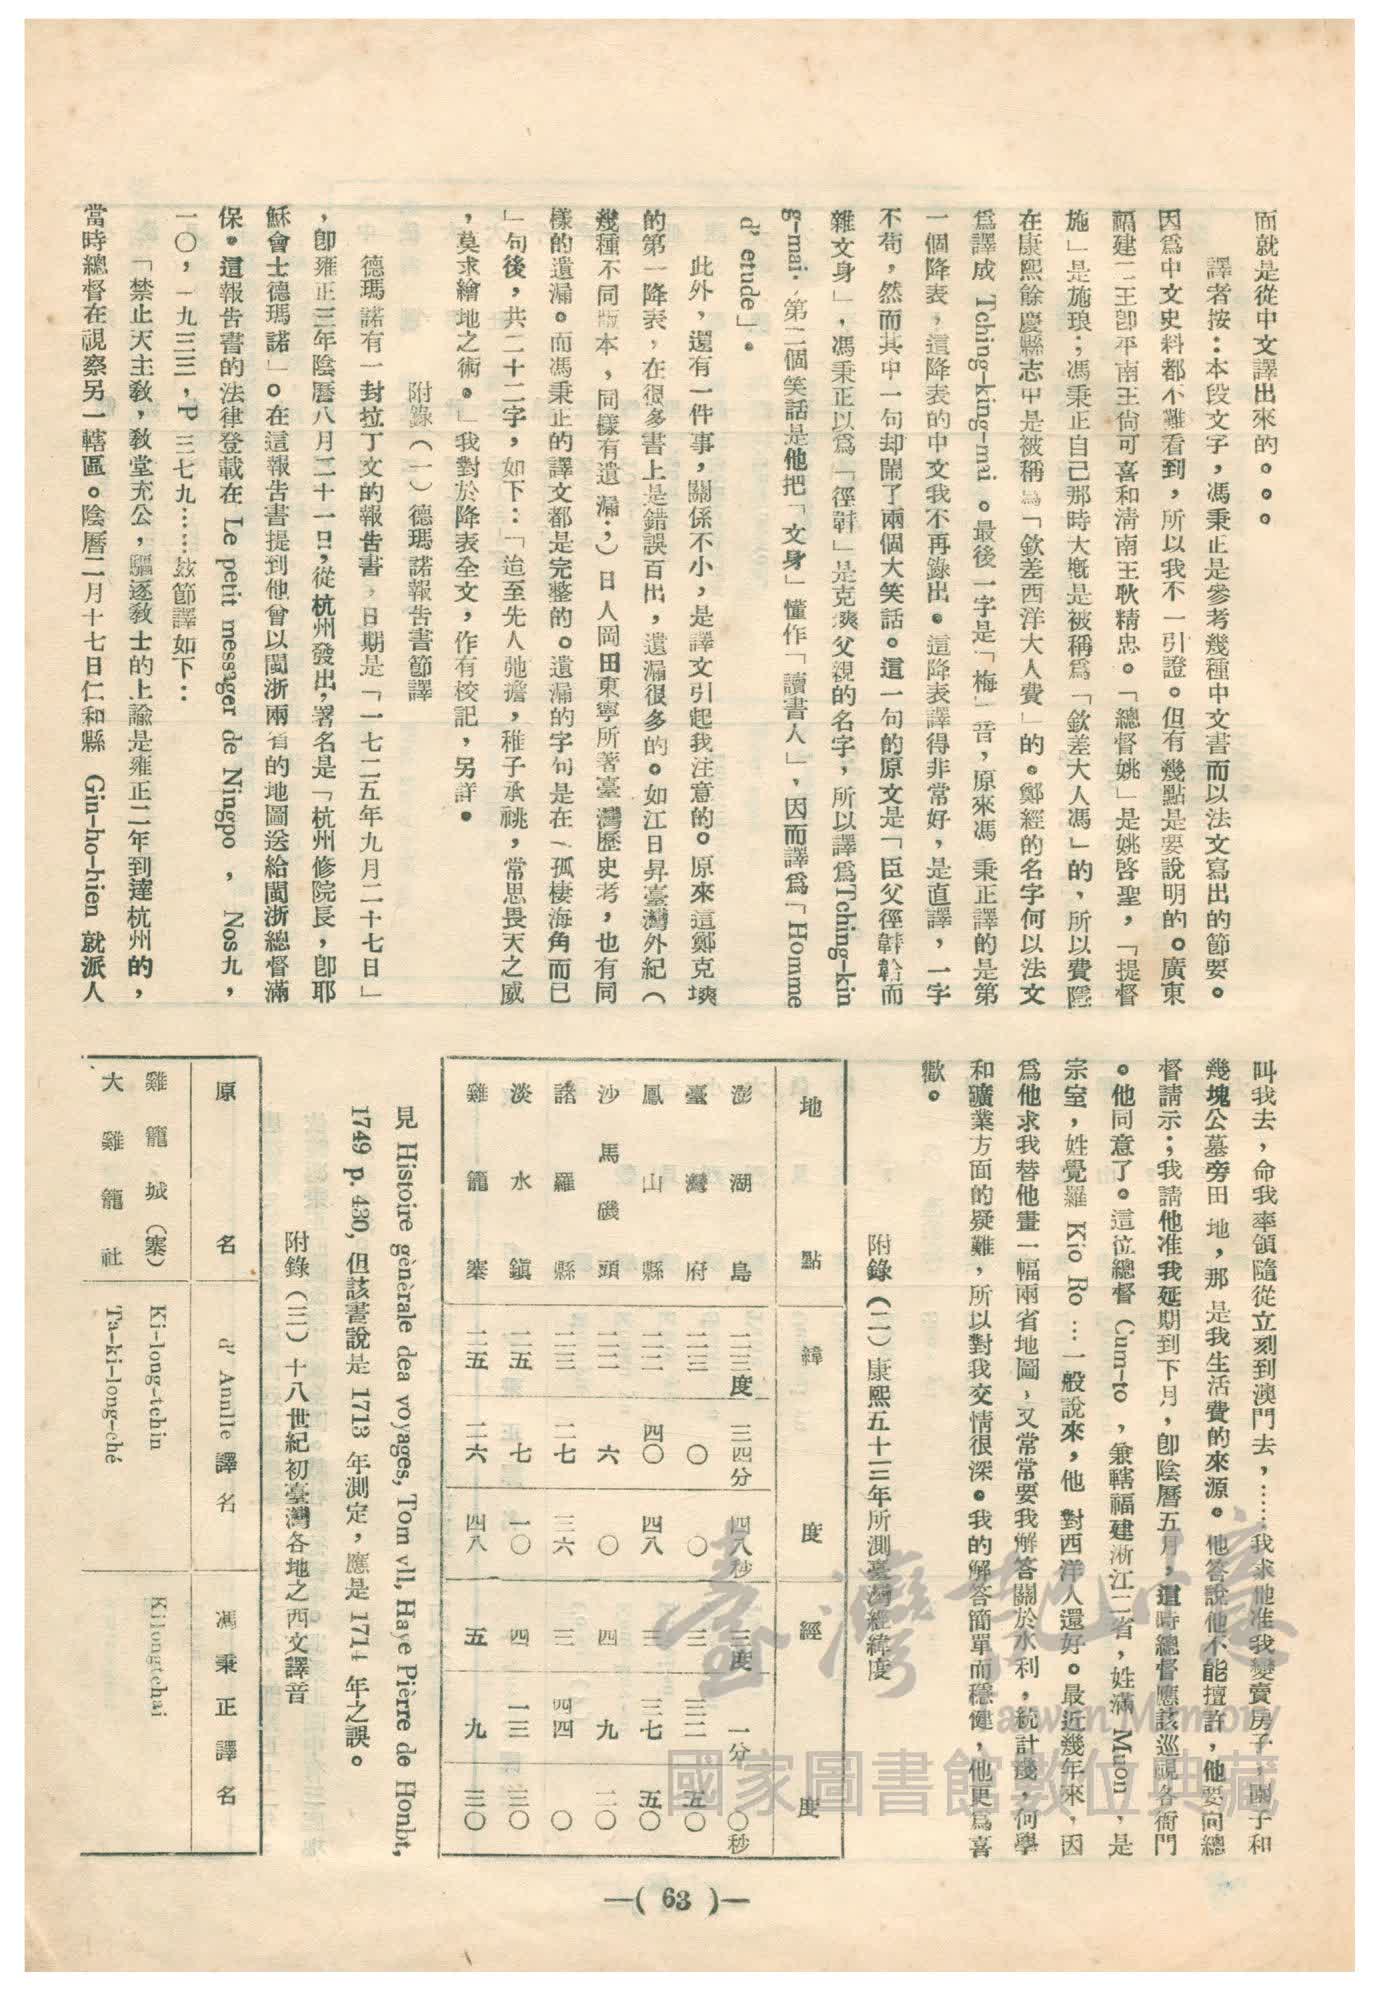 面就是從中文譯出來的。。。
譯者按：本段文字，馮秉正是參考幾種中文書而以法文寫出的節要。
因爲中文史料都不難看到，所以我不一引證。但有幾點是要說明的。廣東
福建二王卽平南王尙可喜和淸南王耿精忠。「總督姚」是姚啓聖，「提督
施」是施琅；馮秉正自己那時大槪是被稱爲「欽差大人馮」的，所以費隱
在康熙餘慶縣志中是被稱爲「欽差西洋大人費」的。鄭經的名字何以法文
爲譯成 Tching-king-mai。最後一字是「梅」音，原來馮秉正譯的是第
一個降表，這降表的中文我不再錄出。這降表譯得非常好，是直譯，一字
不苟，然而其中一句却鬧了兩個大笑話。這一句的原文是「臣父徑韡韐而
雜文身」，馮秉正以爲「徑韡」是克塽父親的名字，所以譯爲Tching-kin
g-mai.第二個笑話是他把「文身」懂作「讀書人」，因而譯爲「Homme
d' etude」。
此外，還有一件事，關係不小，是譯文引起我注意的。原來這鄭克塽
的第一降表，在很多書上是錯誤百出，遺漏很多的。如江日昇臺灣外紀（
幾種不同版本，同樣有遺漏；）日人岡田東寧所著臺灣歷史考，也有同
樣的遺漏。而馮秉正的譯文都是完整的。遺漏的字句是在「孤棲海角而已
」句後，共二十二字，如下：「迨至先人弛擔，稚子承祧，常思畏天之威
，莫求繪地之術。」我對於降表全文，作有校記，另詳。
附錄（一）德瑪諾報告書節譯
德瑪諾有一封拉丁文的報告書，日期是「一七二五年九月二十七日」
，卽雍正三年陰曆八月二十一日，從杭州發出，署名是「杭州修院長，卽耶
穌會士德瑪諾」。在這報告書提到他曾以閩浙兩省的地圖送給閩浙總督滿
保。這報告書的法律登載在 Le petit messager de Ningpo，Nos九，
一〇，一九三三，P 三七九……玆節譯如下：
「禁止天主敎，敎堂充公，驅逐敎士的上諭是雍正二年到達杭州的，
當時總督在視察另一轄區。陰曆二月十七日仁和縣 Gin-ho-hien 就派人
叫我去，命我率領隨從立刻到澳門去，……我求他准我變賣房子，園子和
幾塊公墓旁田地，那是我生活費的來源。他答說他不能擅許，他要向總
督請示；我請他准我延期到下月，卽陰曆五月，這時總督應該巡視各衙門
。他同意了。這位總督 Cum-to，兼轄福建淅江二省，姓滿 Muon，是
宗室，姓覺羅 Kio Ro…一般說來，他對西洋人還好。最近幾年來，因
爲他求我替他畫一幅兩省地圖，又常常要我解答關於水利，統計幾，何學
和礦業方面的疑難，所以對我交情很深。我的解答簡單而穩健，他更爲喜
歡。
附錄（二）康熙五十三年所測臺灣經緯度
地點 緯度 經度
澎湖島 二三度 三四分 四八秒 三度 一分 〇秒
臺灣府 二三 〇 〇 三 三二 五〇
鳳山縣 二二 四〇 四八 三 三七 五〇
沙馬磯頭 二二 六 〇 四 九 二〇
諸羅縣 二三 二七 三六 三 四四 〇
淡水鎭 二五 七 一〇 四 一三 三〇
雞籠寨 二五 一六 四八 五 九 三〇
見 Histoire gènèrale dea voyages, Tom vll, Haye Pièrre de Honbt,
1749 p. 430, 但該書說是 1713 年測定，應是 1714 年之誤。
附錄（三）十八世紀初臺灣各地之西文譯音
原名 d' Annlle譯名 馮秉正譯名
雞籠城（寨） Ki-long-tchin Kilongtchai
大雞籠社 Ta-ki-long-ché
—( 63 )—
臺灣記憶
Taiwan Memory
國家圖書館數位典藏